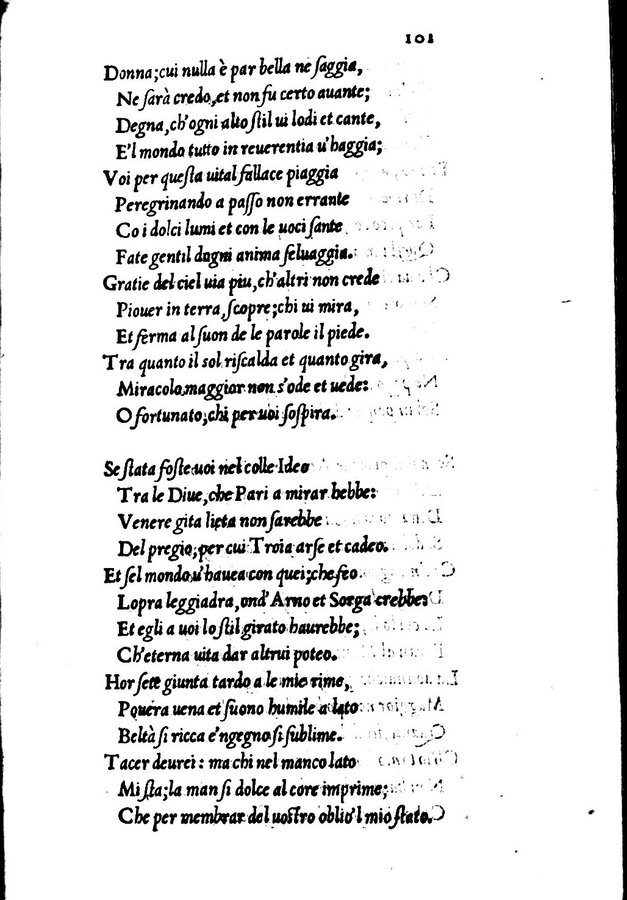 101
Donna; cui nulla è par bella ne ſaggia,
Ne ſarà credo, et non fu certo auante;
Degna, ch'ogni alto ſtil ui lodi et cante,
E'l mondo tutto in reuerentia u'haggia;
Voi per queſta uital fallace piaggia
Peregrinando a paſſo non errante
Co i dolci lumi et con le uoci ſante
Fate gentil dogni anima ſeluaggia.
Gratie del ciel uia piu, ch'altri non crede
Piouer in terra, ſcopre; chi ui mira,
Et ferma al ſuon de le parole il piede.
Tra quanto il sol riſcalda et quanto gira,
Miracolo maggior non s'ode et uede:
O fortunato, chi per uoi ſoſpira.
Se ſtata foſte uoi nel colle Ideo
Tra le Diue, che Pari a mirar hebbe:
Venere gita lieta non ſarebbe
Del pregio, per cui Troia arſe et cadeo.
Et ſel mondo u'hauea con quei; che feo
Lopra leggiadra, ond'Arno et Sorga crebbe:
Et egli a uoi lo ſtil girato haurebbe;
Ch'eterna uita dar altrui poteo.
Hor ſete giunta tardo a le mie rime,
Pouera uena et ſuono humile a lato
Beltà ſi ricca e'ngegno ſi ſublime.
Tacer deurei: ma chi nel manco lato
Mi ſta; la man ſi dolce al core imprime;
Che per membrar del uoſtro oblio'l mio ſtato.